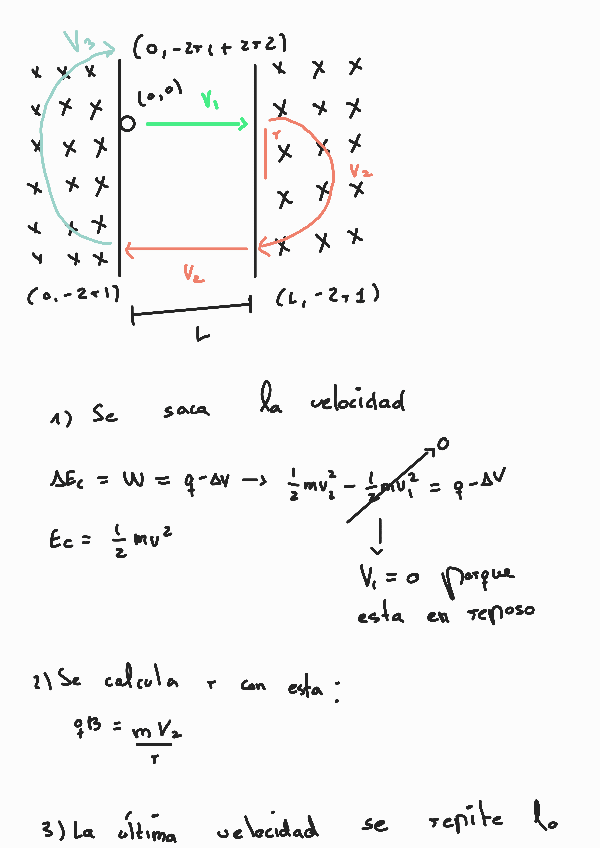 V3 (0, -2r1 + 2r2)
(0,0)
V1
r
V2
V2
(0, -2r1) (L, -2r1)
L
1) Se saca la velocidad
ΔEc = W = q-ΔV → 1/2 mv2² - 1/2 mv1² = q-ΔV
0
Ec = 1/2 mv²
V1 = 0 porque
esta en reposo
2) Se calcula r con esta:
qB = mV2/r
3) La última velocidad se repite lo